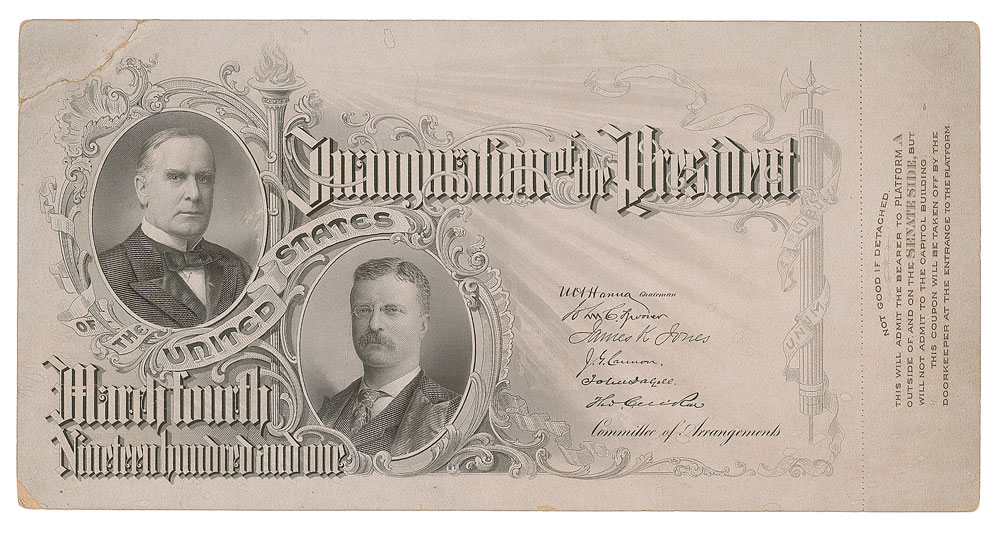 Inauguration of the President
OF THE UNITED STATES
March fourth
Nineteen hundred and one
M A Hanna Chairman
John C Spooner
James K Jones
J. G. Cannon.
John Dalzell.
Committee of Arrangements
PLURIBUS
UNUM
NOT GOOD IF DETACHED
THIS WILL ADMIT THE BEARER TO PLATFORM A
OUTSIDE OF, AND ON THE SENATE SIDE, BUT
WILL NOT ADMIT TO THE CAPITOL BUILDING
THIS COUPON WILL BE TAKEN OFF BY THE
DOORKEEPER AT THE ENTRANCE TO THE PLATFORM